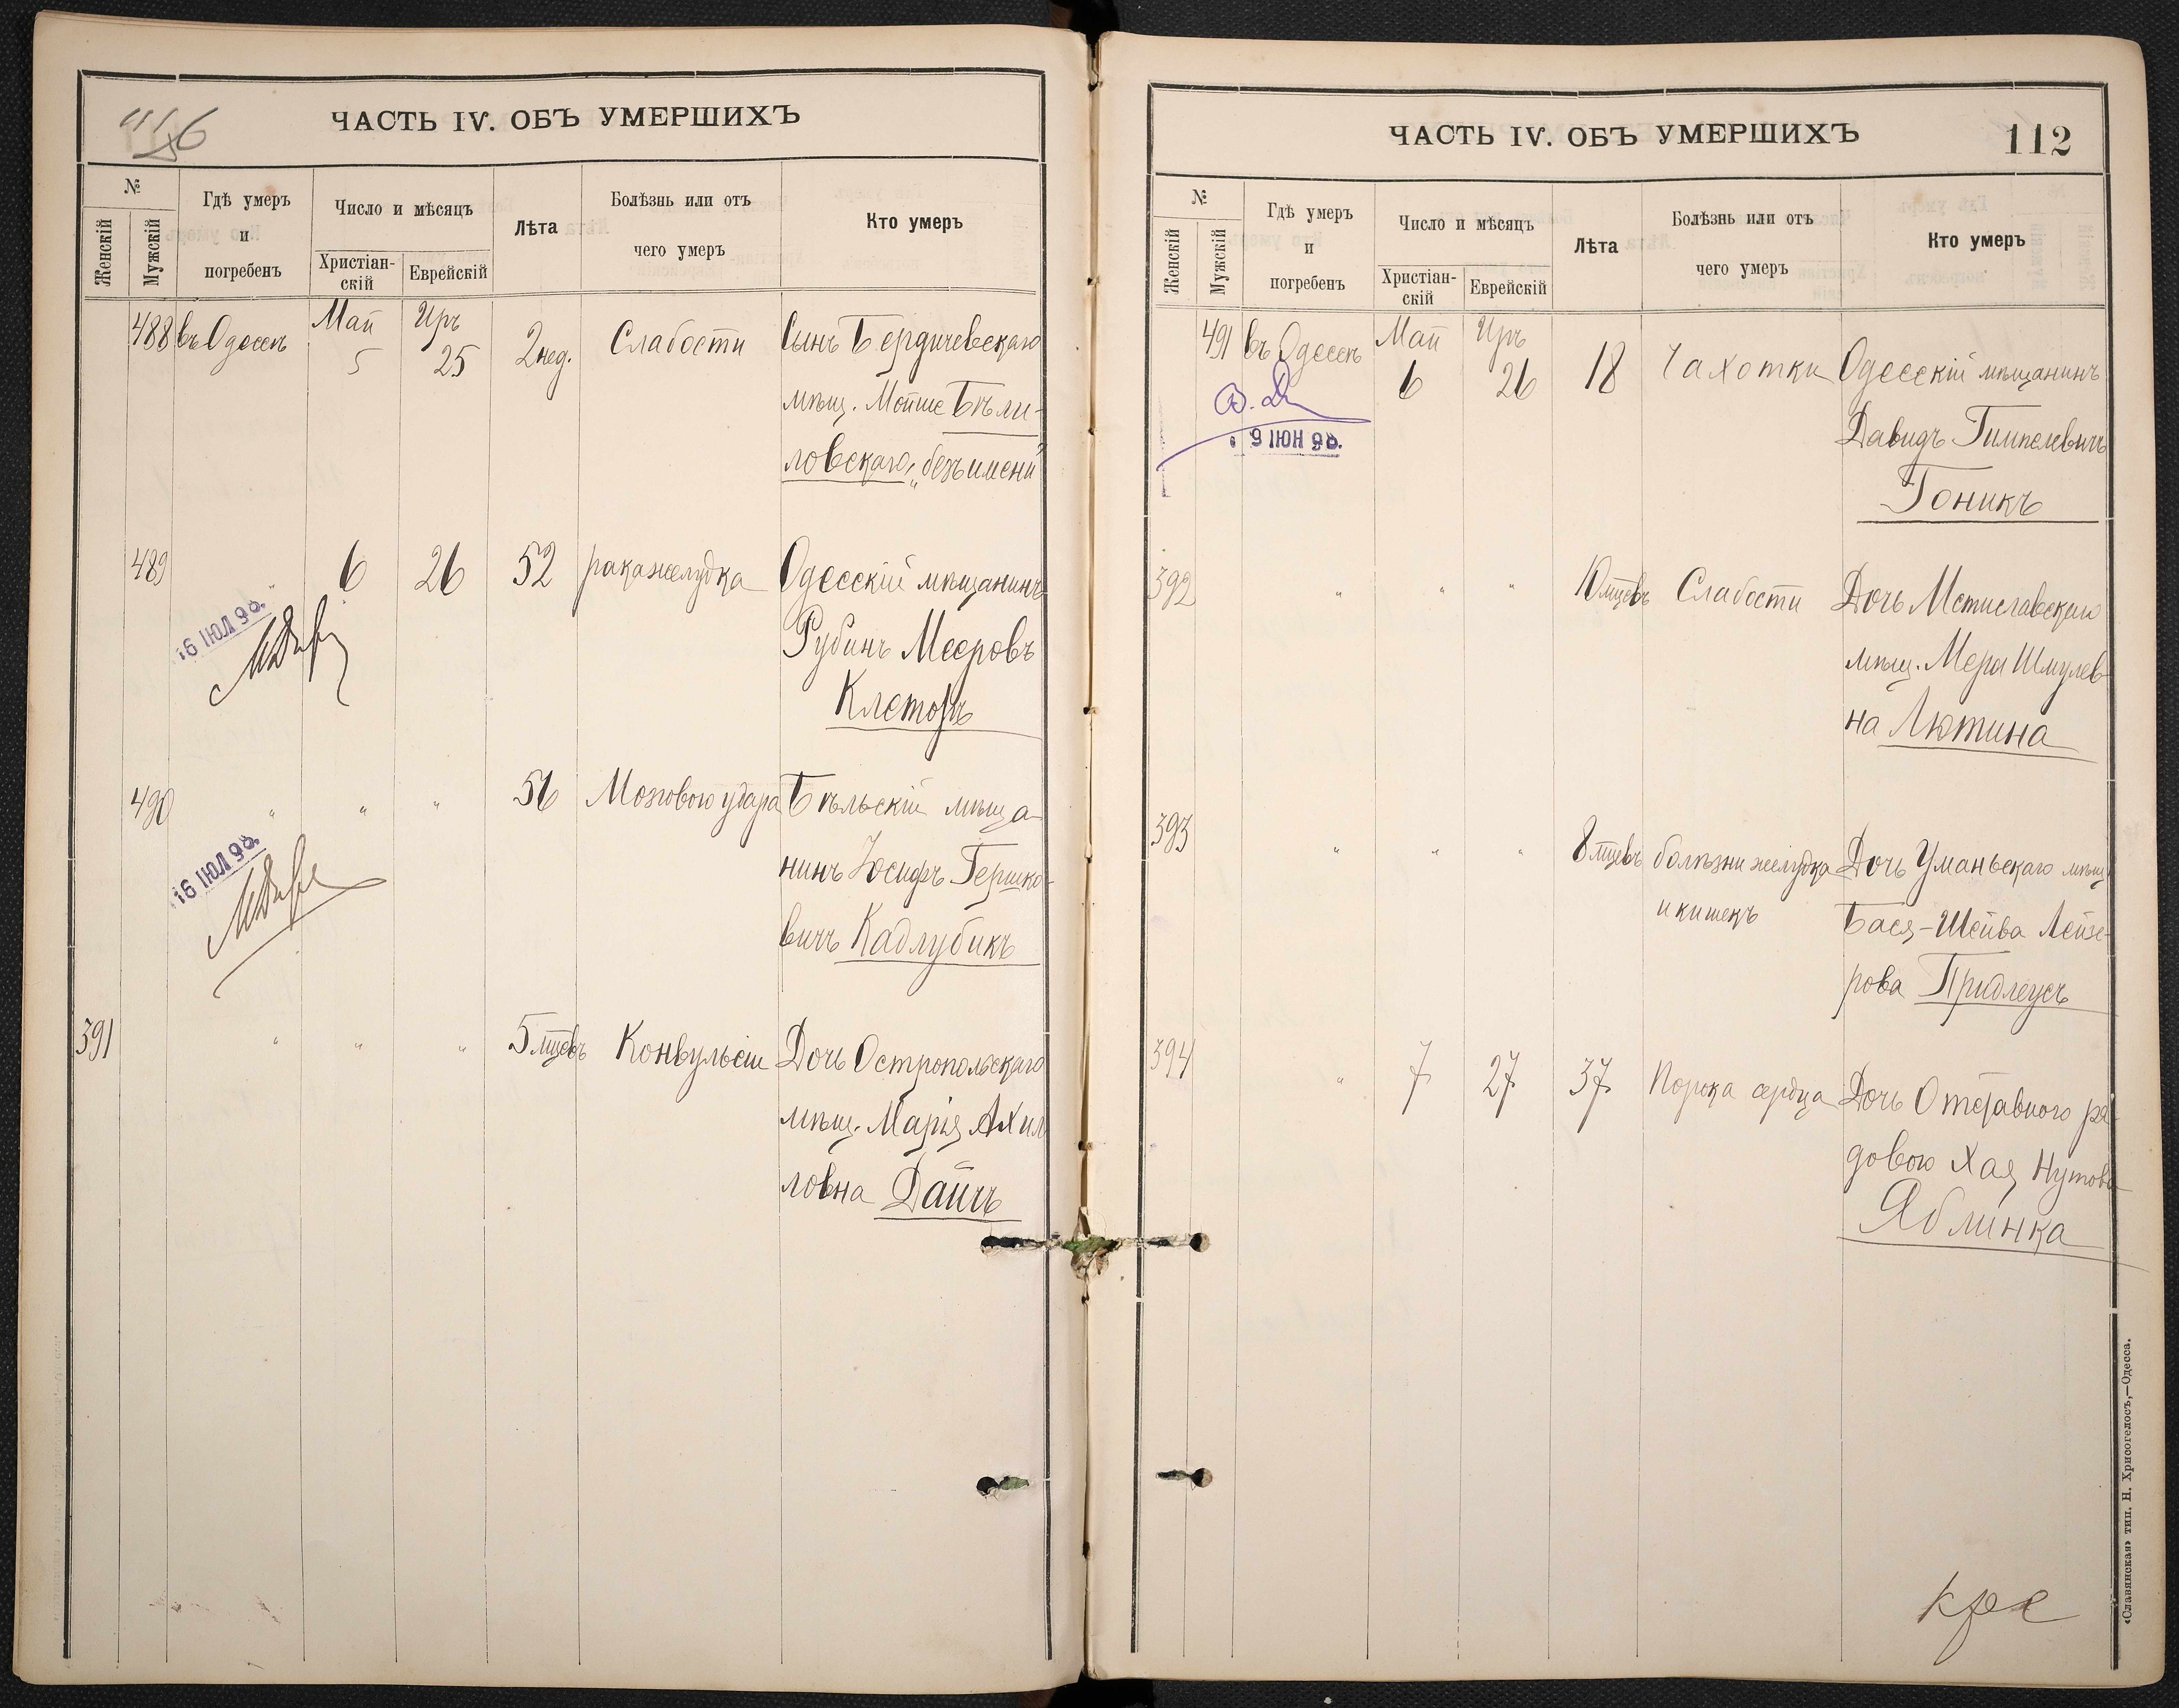 ЧАСТЬ IV. ОБЪ УМЕРШИХЪ
№
Женскій
Мужскій
Гдѣ умеръ
и
погребенъ
Число и мѣсяцъ
Христіан-
скій
Еврейскій
Лѣта
Болѣзнь или отъ
чего умеръ
Кто умеръ
488 въ Одессѣ Май 5 Иръ 25 2 нед. Слабости Сынъ Бердичевскаго
мѣщ. Мойше Бѣли-
ловскаго „безъ имени“
489 " 6 26 52 рака желудка Одесскій мѣщанинъ
16 ІЮЛ 98.
Рубинъ Мееровъ
Клеторъ
490 " " " 56 Мозгового удара Бѣльскій мѣща-
16 ІЮЛ 98.
нинъ Іосифъ Гершко-
вичъ Кадлубикъ
391 " " " 5 мцевъ Конвульсіи Дочь Остропольскаго
мѣщ. Марія Ахил
ловна Дайчъ
ЧАСТЬ IV. ОБЪ УМЕРШИХЪ
112
№
Женскій
Мужскій
Гдѣ умеръ
и
погребенъ
Число и мѣсяцъ
Христіан-
скій
Еврейскій
Лѣта
Болѣзнь или отъ
чего умеръ
Кто умеръ
491 въ Одессѣ Май 6 Иръ 26 18 Чахотки Одесскій мѣщанинъ
9 ІЮН 98.
Давидъ Гимпелевичъ
Гоникъ
392 " " " 10 мцевъ Слабости Дочь Мстиславскаго
мѣщ. Мера Шмулев
на Лютина
393 " " " 8 мцевъ болѣзни желудка Дочь Уманьскаго мѣщ
и кишекъ Бася-Шейва Лейзе-
рова Придлеусъ
394 " 7 27 37 Порока сердца Дочь Отставного ря-
дового Хая Нутова
Яблинка
«Славянская» тип. Н. Хрисогелосъ,—Одесса.